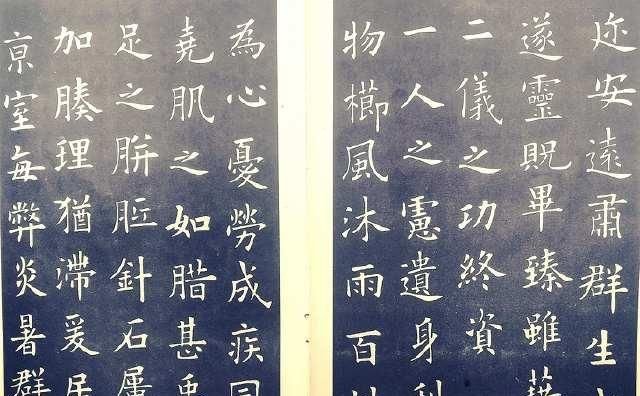 迩安遠肅群生
遂靈貺畢臻雖藉
二儀之功終資
一人之慮遺身利
物櫛風沐雨百
為心憂勞成疾同
堯肌之如腊甚禹
足之胼胝針石屢
加腠理猶滯爰居
亰室每弊炎暑群